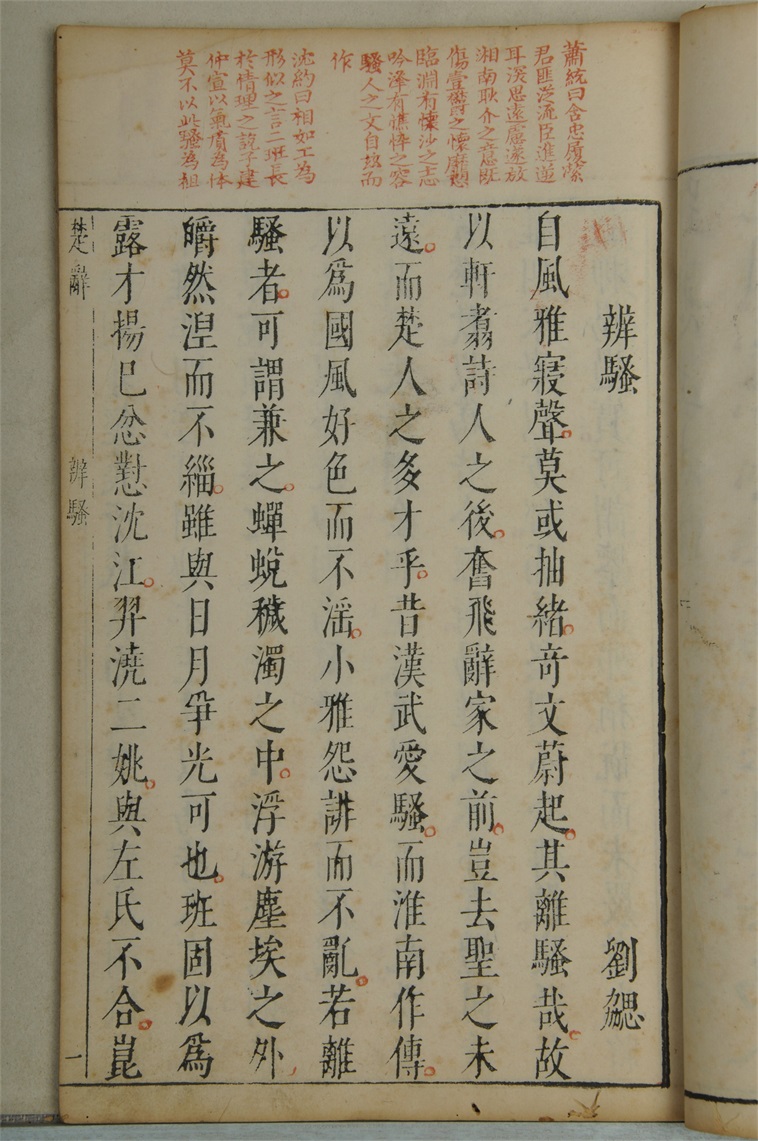 蕭統曰含忠履潔
君匪從流臣進逆
耳深思遠慮遂放
湘南耿介之意既
傷壹鬱之懷靡愬
臨淵有懷沙之志
吟澤有憔悴之容
騷人之文自茲而
作
沈約曰相如工為
形似之言二班長
於情理之說子建
仲宣以氣質為体
莫不以此騷為祖
辨騷　劉勰
自風雅寢聲莫或抽緒奇文蔚起其離騷哉故
以軒翥詩人之後奮飛辭家之前豈去聖之未
遠而楚人之多才乎昔漢武愛騷而淮南作傳
以爲國風好色而不滛小雅怨誹而不亂若離
騷者可謂兼之蟬蛻穢濁之中浮游塵埃之外
皭然涅而不緇雖與日月爭光可也班固以爲
露才揚已忿懟沈江羿澆二姚與左氏不合崑
楚辭　辨騷　一